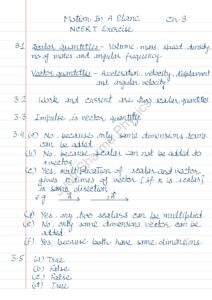 Motion In A Plane Ch. 3
NCERT Exercise
3.1 Scalar quantities - Volume, mass, speed, density
no. of moles and angular frequency
Vector quantities - Acceleration, velocity, displacement
and angular velocity
3.2 Work and current are two scalar quantities
3.3 Impulse is vector quantity
3.4 (a) No because only same dimensions terms
can be added
(b) No because scalar can not be added to
a vector
(c) Yes, multiplication of scalar and vector
gives n times of vector [if n is scalar]
in same direction
e.g
(d) Yes any two scalars can be multiplied
(e) No only same dimensions vector can be
added
(f) Yes because both have same dimensions
3.5 (a) True
(b) False
(c) False
(d) True